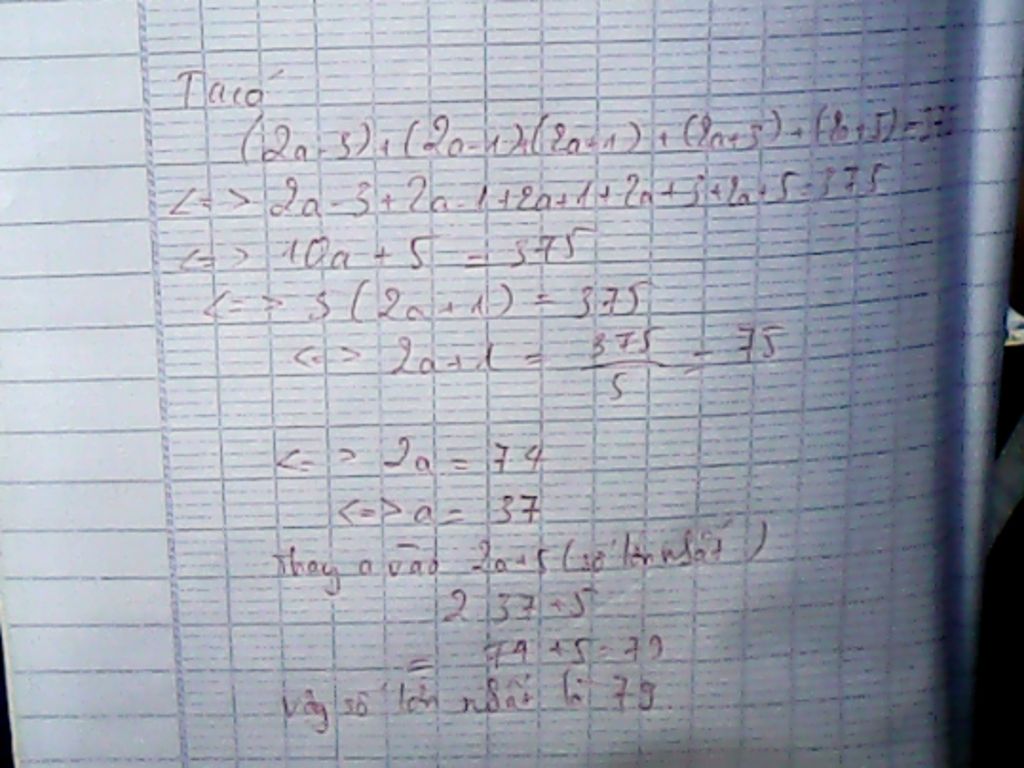 Ta có
(2a-3)+(2a-1)+(2a+1)+(2a+3)+(2a+5)=375
<=> 2a-3+2a-1+2a+1+2a+3+2a+5=375
<=> 10a+5 = 375
<=> 5(2a+1) = 375
<=> 2a+1 = 375/5 = 75
<=> 2a = 74
<=> a = 37
Thay a vào 2a+5 (số lớn nhất)
2.37+5
= 74+5=79
Vậy số lớn nhất là 79